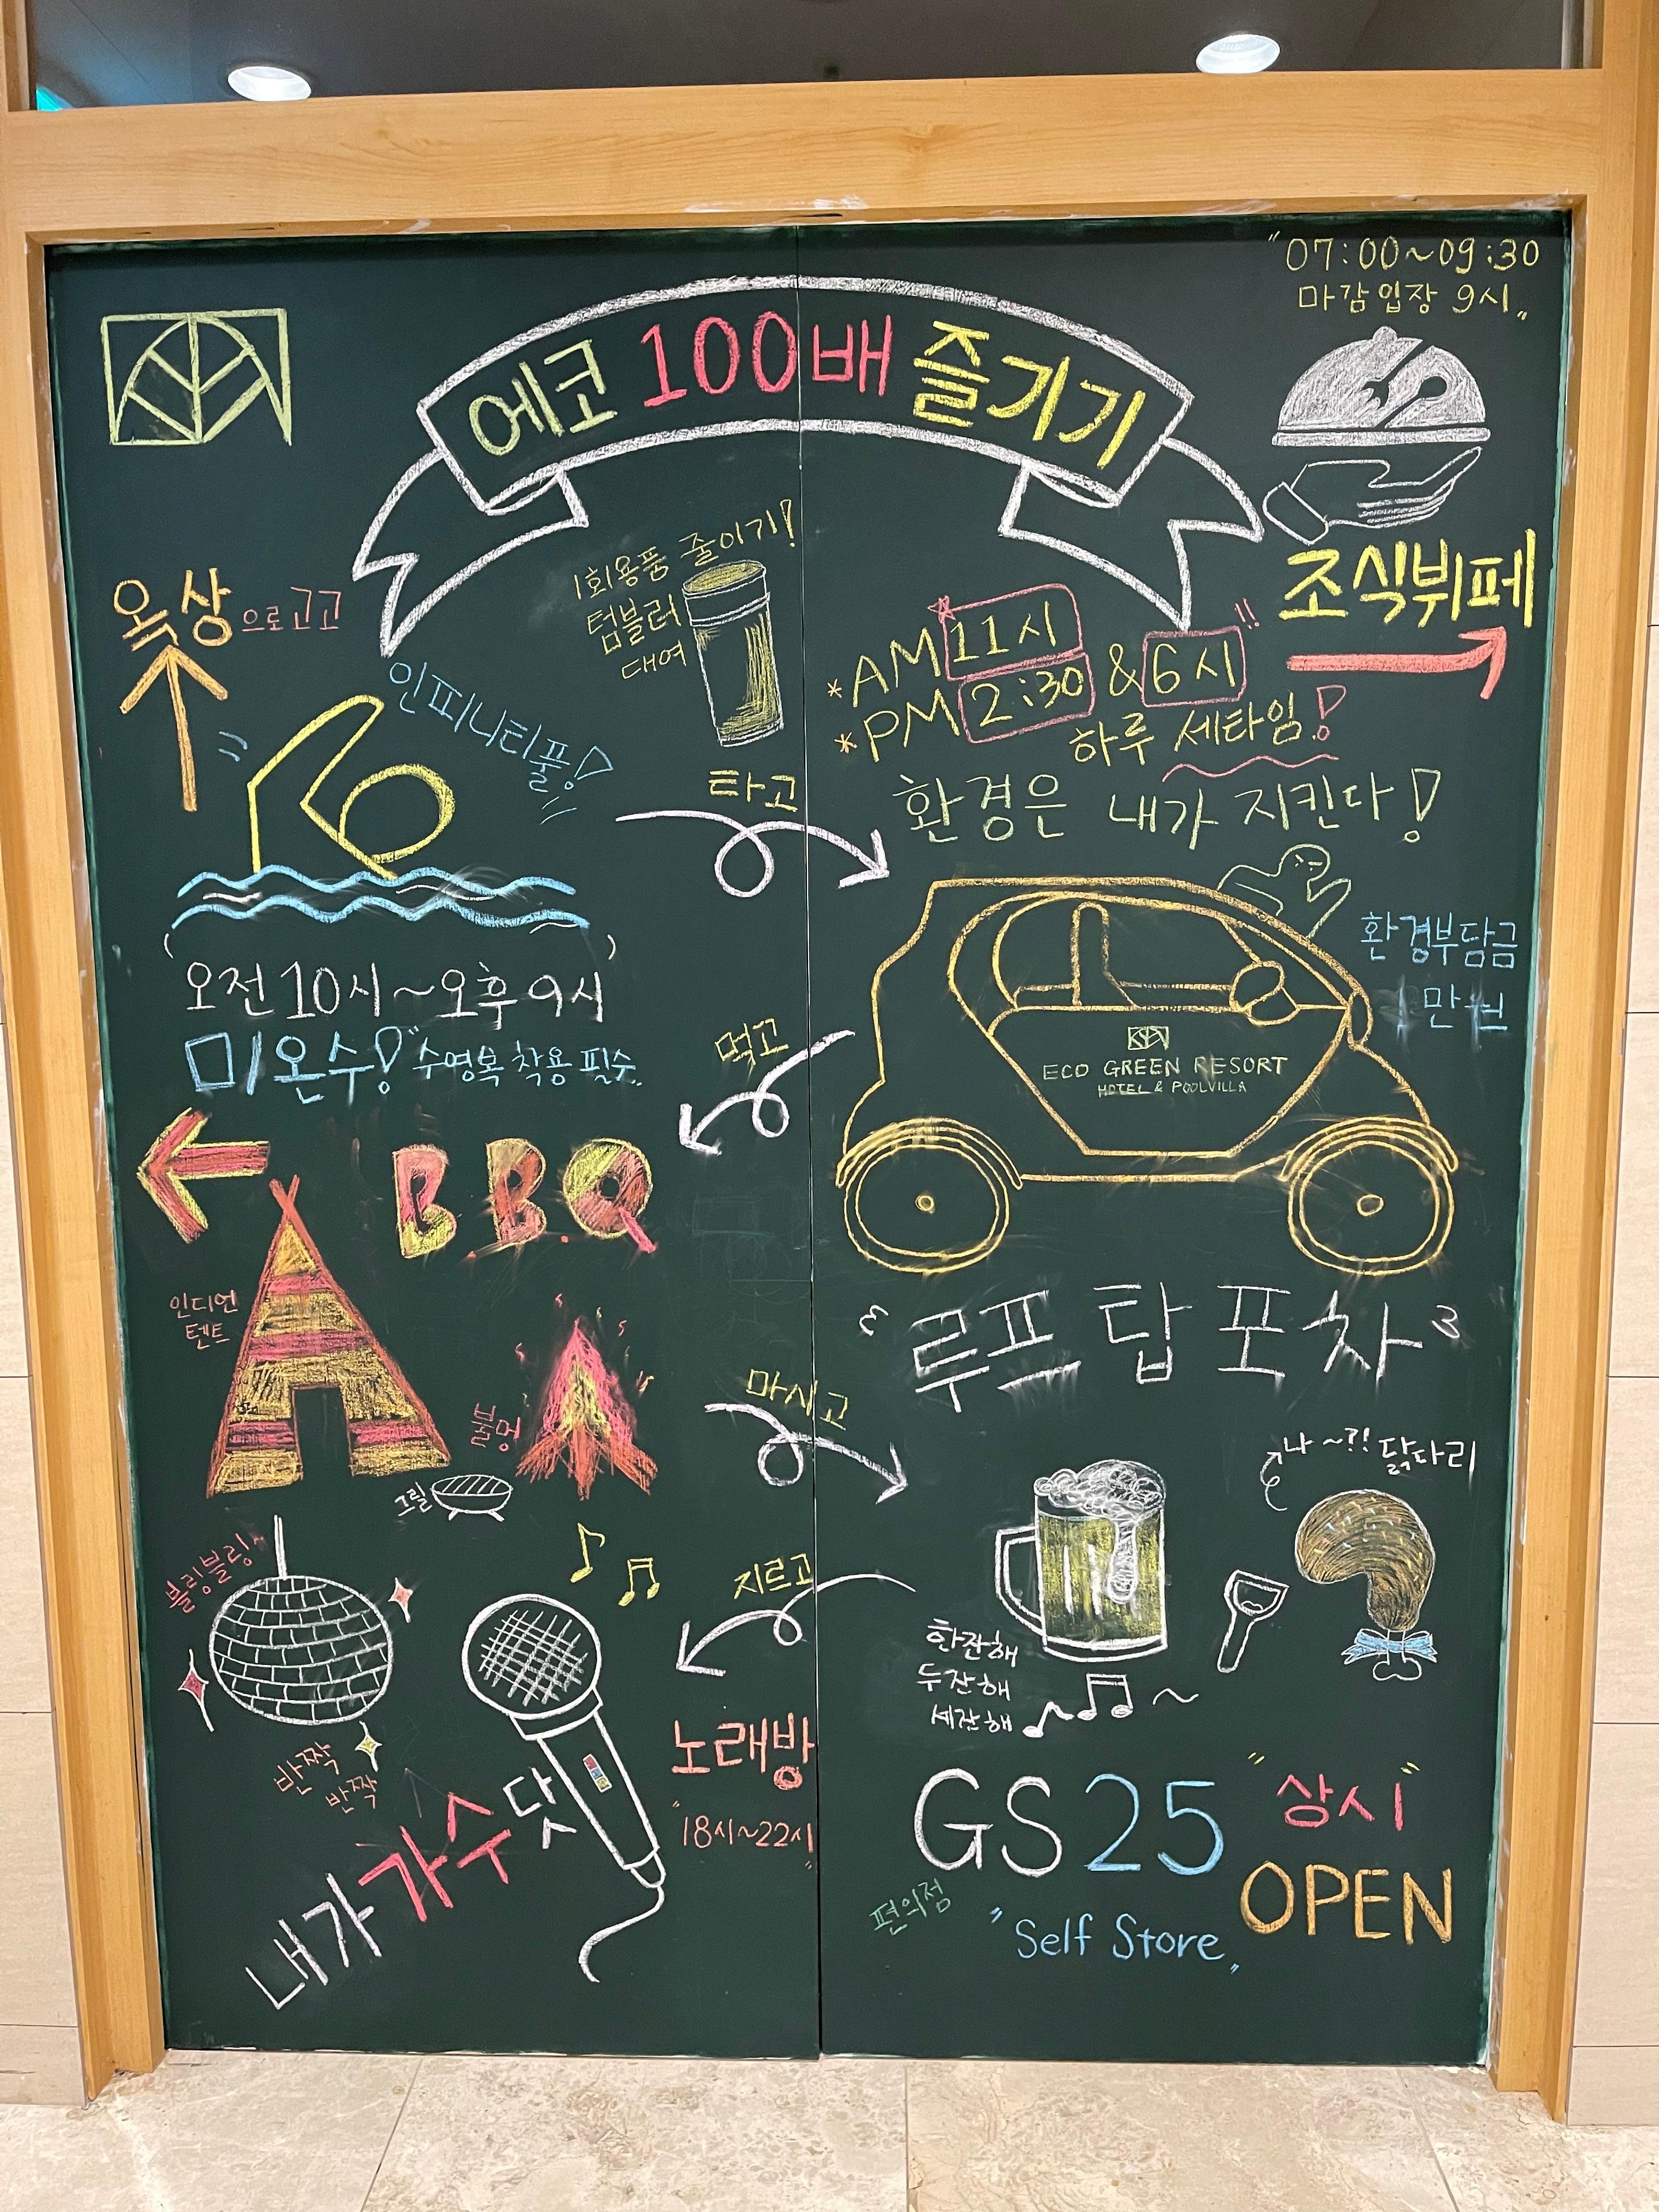 "07:00~09:30
마감입장 9시„
에코 100배 즐기기
조식뷔페
옥상으로고고
1회용품 줄이기!
텀블러
대여
인피니티풀!
*AM 11시
*PM 2:30 & 6시!!
하루 세타임!
타고
환경은 내가 지킨다!
환경부담금
만원
오전10시~오후9시
미온수! "수영복 착용 필수„
ECO GREEN RESORT
HOTEL & POOLVILLA
먹고
B.B.Q
인디언
텐트
불멍
그릴
루프탑포차
마시고
나~?! 닭다리
블링블링
지르고
한잔해
두잔해
세잔해
반짝
반짝
노래방
"18시~22시"
내가 가수닷
GS25
"상시"
OPEN
편의점
"Self Store„